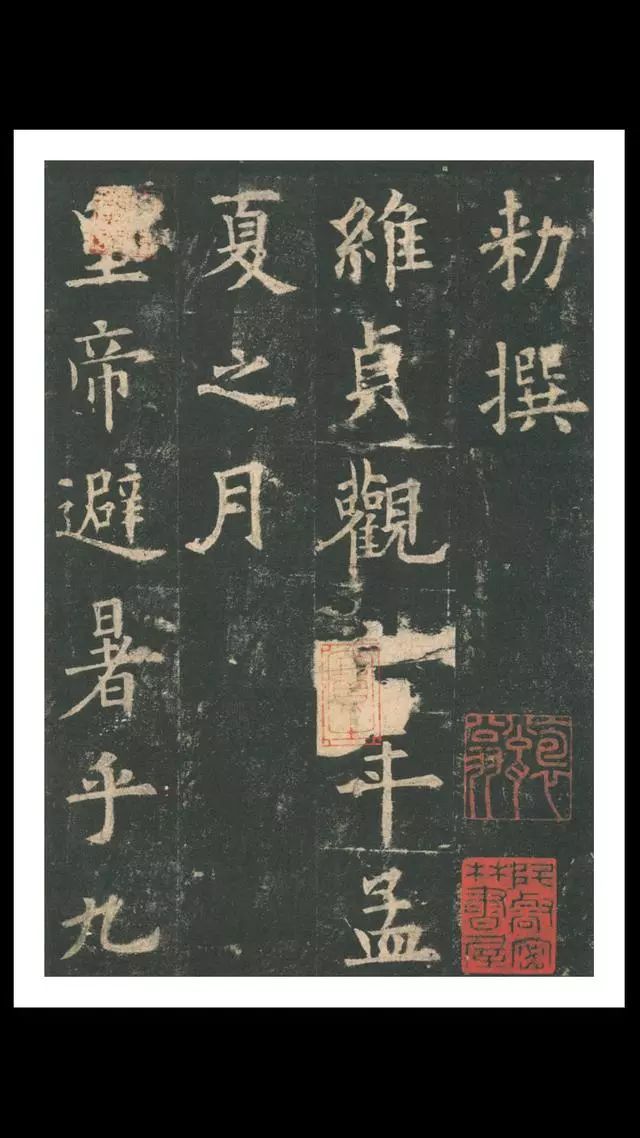 勑撰
維貞觀年孟
夏之月
皇帝避暑乎九